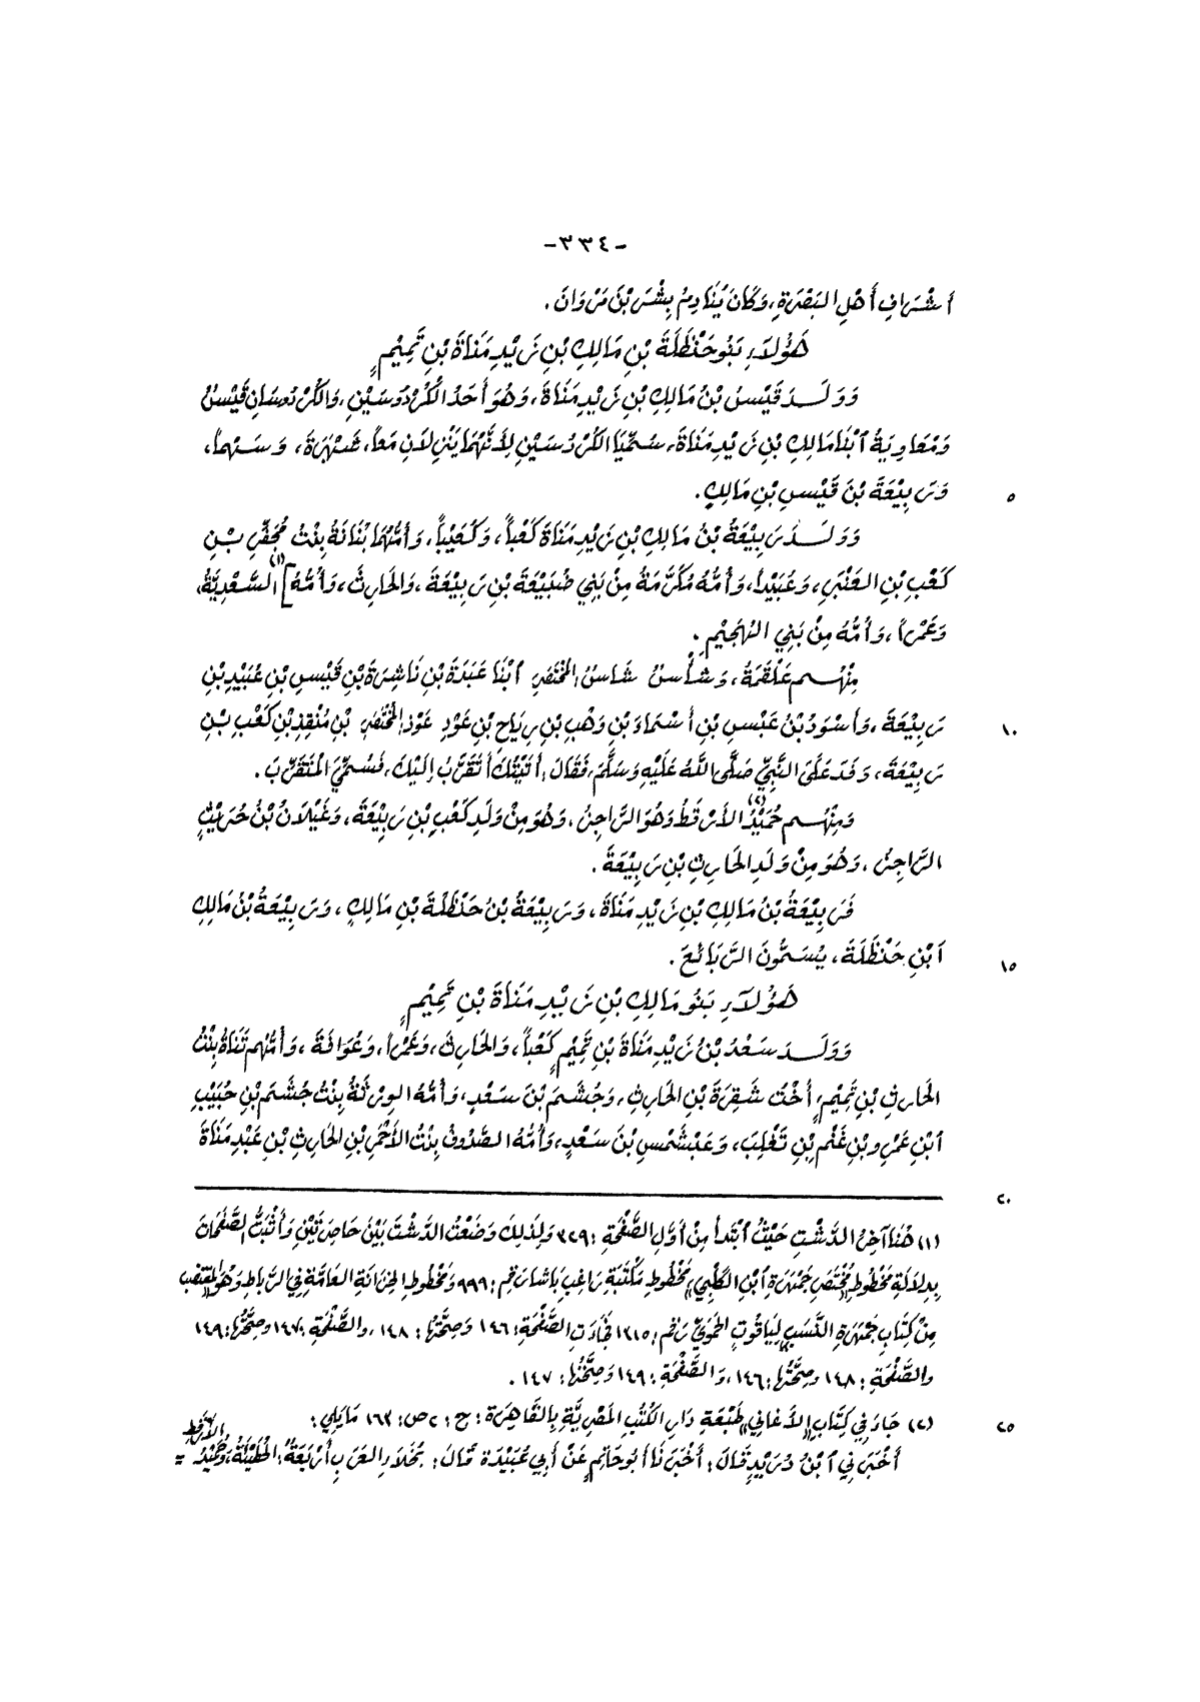 -٣٣٤-
أَشْرَافِ أَهْلِ البَصْرَةِ، وَكَانَ يُنَادِمُ بِشْرَ بْنَ مَرْوَانَ.
هَؤُلَاءِ بَنُو حَنْظَلَةَ بْنِ مَالِكِ بْنِ زَيْدِ مَنَاةَ بْنِ تَمِيْمٍ
وَوَلَدَ قَيْسُ بْنُ مَالِكِ بْنِ زَيْدِ مَنَاةَ، وَهُوَ أَحَدُ الكُرْدُوسَيْنِ، وَالكُرْدُوسَانِ قَيْسٌ
وَمُعَاوِيَةُ ٱبْنَا مَالِكِ بْنِ زَيْدِ مَنَاةَ، سُمِّيَا الكُرْدُسَيْنِ لِأَنَّهُمَا يَنْزِلَانِ مَعاً، شَهْرَةَ، وَسَهْماً،
٥ وَرَبِيْعَةَ بْنَ قَيْسِ بْنِ مَالِكٍ.
وَوَلَدَ رَبِيْعَةُ بْنُ مَالِكِ بْنِ زَيْدِ مَنَاةَ كَعْباً، وَكُعَيْباً، وَأُمُّهُمَا بُنَانَةُ بِنْتُ مُجَفِّرِ بْنِ
كَعْبِ بْنِ العَنْبَرِ، وَعُبَيْداً، وَأُمُّهُ مُكَرَّمَةُ مِنْ بَنِي ضُبَيْعَةَ بْنِ رَبِيْعَةَ، وَالحَارِثَ، وَأُمُّهُ](١) السَّعْدِيَّةُ،
وَعَمْراً، وَأُمُّهُ مِنْ بَنِي الهُجَيْمِ.
مِنْهُم عَلْقَمَةُ، وَشَأْسٌ شَاسُ المُخْتَصَرِ ٱبْنَا عَبَدَةَ بْنِ نَاشِرَةَ بْنِ قَيْسِ بْنِ عُبَيْدِ بْنِ
١٠ رَبِيْعَةَ، وَأَسْوَدُ بْنُ عَبْسِ بْنِ أَسْمَاءَ بْنِ وَهْبِ بْنِ رِيَاحِ بْنِ عَوْدِ عَوْذ المُخْتَصَرِ بْنِ مُنْقِذِ بْنِ كَعْبِ بْنِ
رَبِيْعَةَ، وَفَدَ عَلَى النَّبِيِّ صَلَّى اللهُ عَلَيْهِ وَسَلَّمَ، فَقَالَ: أَتَيْتُكَ أَتَقَرَّبُ إِلَيْكَ، فَسُمِّيَ المُتَقَرِّبَ.
وَمِنْهُم حُمَيْدٌ(٢) الأَرْقَطُ وَهُوَ الرَّاجِزُ، وَهُوَ مِنْ وَلَدِ كَعْبِ بْنِ رَبِيْعَةَ، وَغَيْلَانُ بْنُ حُرَيْثٍ
الرَّاجِزُ، وَهُوَ مِنْ وَلَدِ الحَارِثِ بْنِ رَبِيْعَةَ.
فَرَبِيْعَةُ بْنُ مَالِكِ بْنِ زَيْدِ مَنَاةَ، وَرَبِيْعَةُ بْنُ حَنْظَلَةَ بْنِ مَالِكٍ، وَرَبِيْعَةُ بْنُ مَالِكِ
١٥ ٱبْنِ حَنْظَلَةَ، يُسَمُّونَ الرَّبَائِعَ.
هَؤُلَاءِ بَنُو مَالِكِ بْنِ زَيْدِ مَنَاةَ بْنِ تَمِيْمٍ
وَوَلَدَ سَعْدُ بْنُ زَيْدِ مَنَاةَ بْنِ تَمِيْمٍ كَعْباً، وَالحَارِثَ، وَعَمْراً، وَعُوَافَةَ، وَأُمُّهُم تَنَاةُ بِنْتُ
الحَارِثِ بْنِ تَمِيْمٍ، أُخْتُ شَقِرَةَ بْنِ الحَارِثِ، وَجُشَمَ بْنَ سَعْدٍ، وَأُمُّهُ الوِرْثَةُ بِنْتُ جُشَمَ بْنِ حُبَيْبِ
ٱبْنِ عَمْرِو بْنِ غَنْمِ بْنِ تَغْلِبَ، وَعَبْشَمْسِ بْنَ سَعْدٍ، وَأُمُّهُ الصَّدُوفُ بِنْتُ الأَحْمَرِ بْنِ الحَارِثِ بْنِ عَبْدِ مَنَاةَ
٢٠
(١) هُنَا آخِرُ الدَّشْتِ حَيْثُ ٱبْتَدأَ مِنْ أَوَّلِ الصَّفْحَةِ: ٣٢٩ وَلِذَلِكَ وَضَعْتُ الدَّشْتَ بَيْنَ حَاصِرَتَيْنِ وَأَثْبَتُّ الصَّفَحَاتَ
بِدِلَالَةِ مَخْطُوطِ مُخْتَصَرِ جَمْهَرَةِ ٱبْنِ الكَلْبِيِّ مَخْطُوطِ مَكْتَبَةِ رَاغِب بَاشَا رَقم: ٩٩٩ وَمَخْطُوطِ الخِزَانَةِ العَامَّةِ فِي الرِّبَاطِ وَهُوَ المُقتضب
مِنْ كِتَابِ جَمْهَرَةِ النَّسَبِ لِيَاقُوتٍ الحَمَوِيِّ رَقم: ١٢١٥ فَجَاءَتِ الصَّفْحَةِ: ١٤٦ وَصِحَّتُهَا: ١٤٨، والصَّفْحَةِ: ١٤٧ وصِحَّتُهَا: ١٤٩
والصَّفْحَةِ: ١٤٨ وصِحَّتُهَا: ١٤٦، وَالصَّفْحَةِ: ١٤٩ وَصِحَّتُهَا: ١٤٧.
٢٥ (٢) جَاءَ فِي كِتَابِ الأَغَانِي طَبْعَةِ دَارِ الكُتُبِ المَصْرِيَّةِ بِالقَاهِرَةِ: ج: ٢ ص: ١٦٣ مَا يَلِي:
أَخْبَرَنِي ٱبْنُ دُرَيْدٍ قَالَ: أَخْبَرَنَا أَبُو حَاتِمٍ عَنْ أَبِي عُبَيْدَةَ قَالَ: بُخَلَاءُ العَرَبِ أَرْبَعَةٌ: الحُطَيْئَةُ، وَحُمَيْدٌ الأَرْقَط =